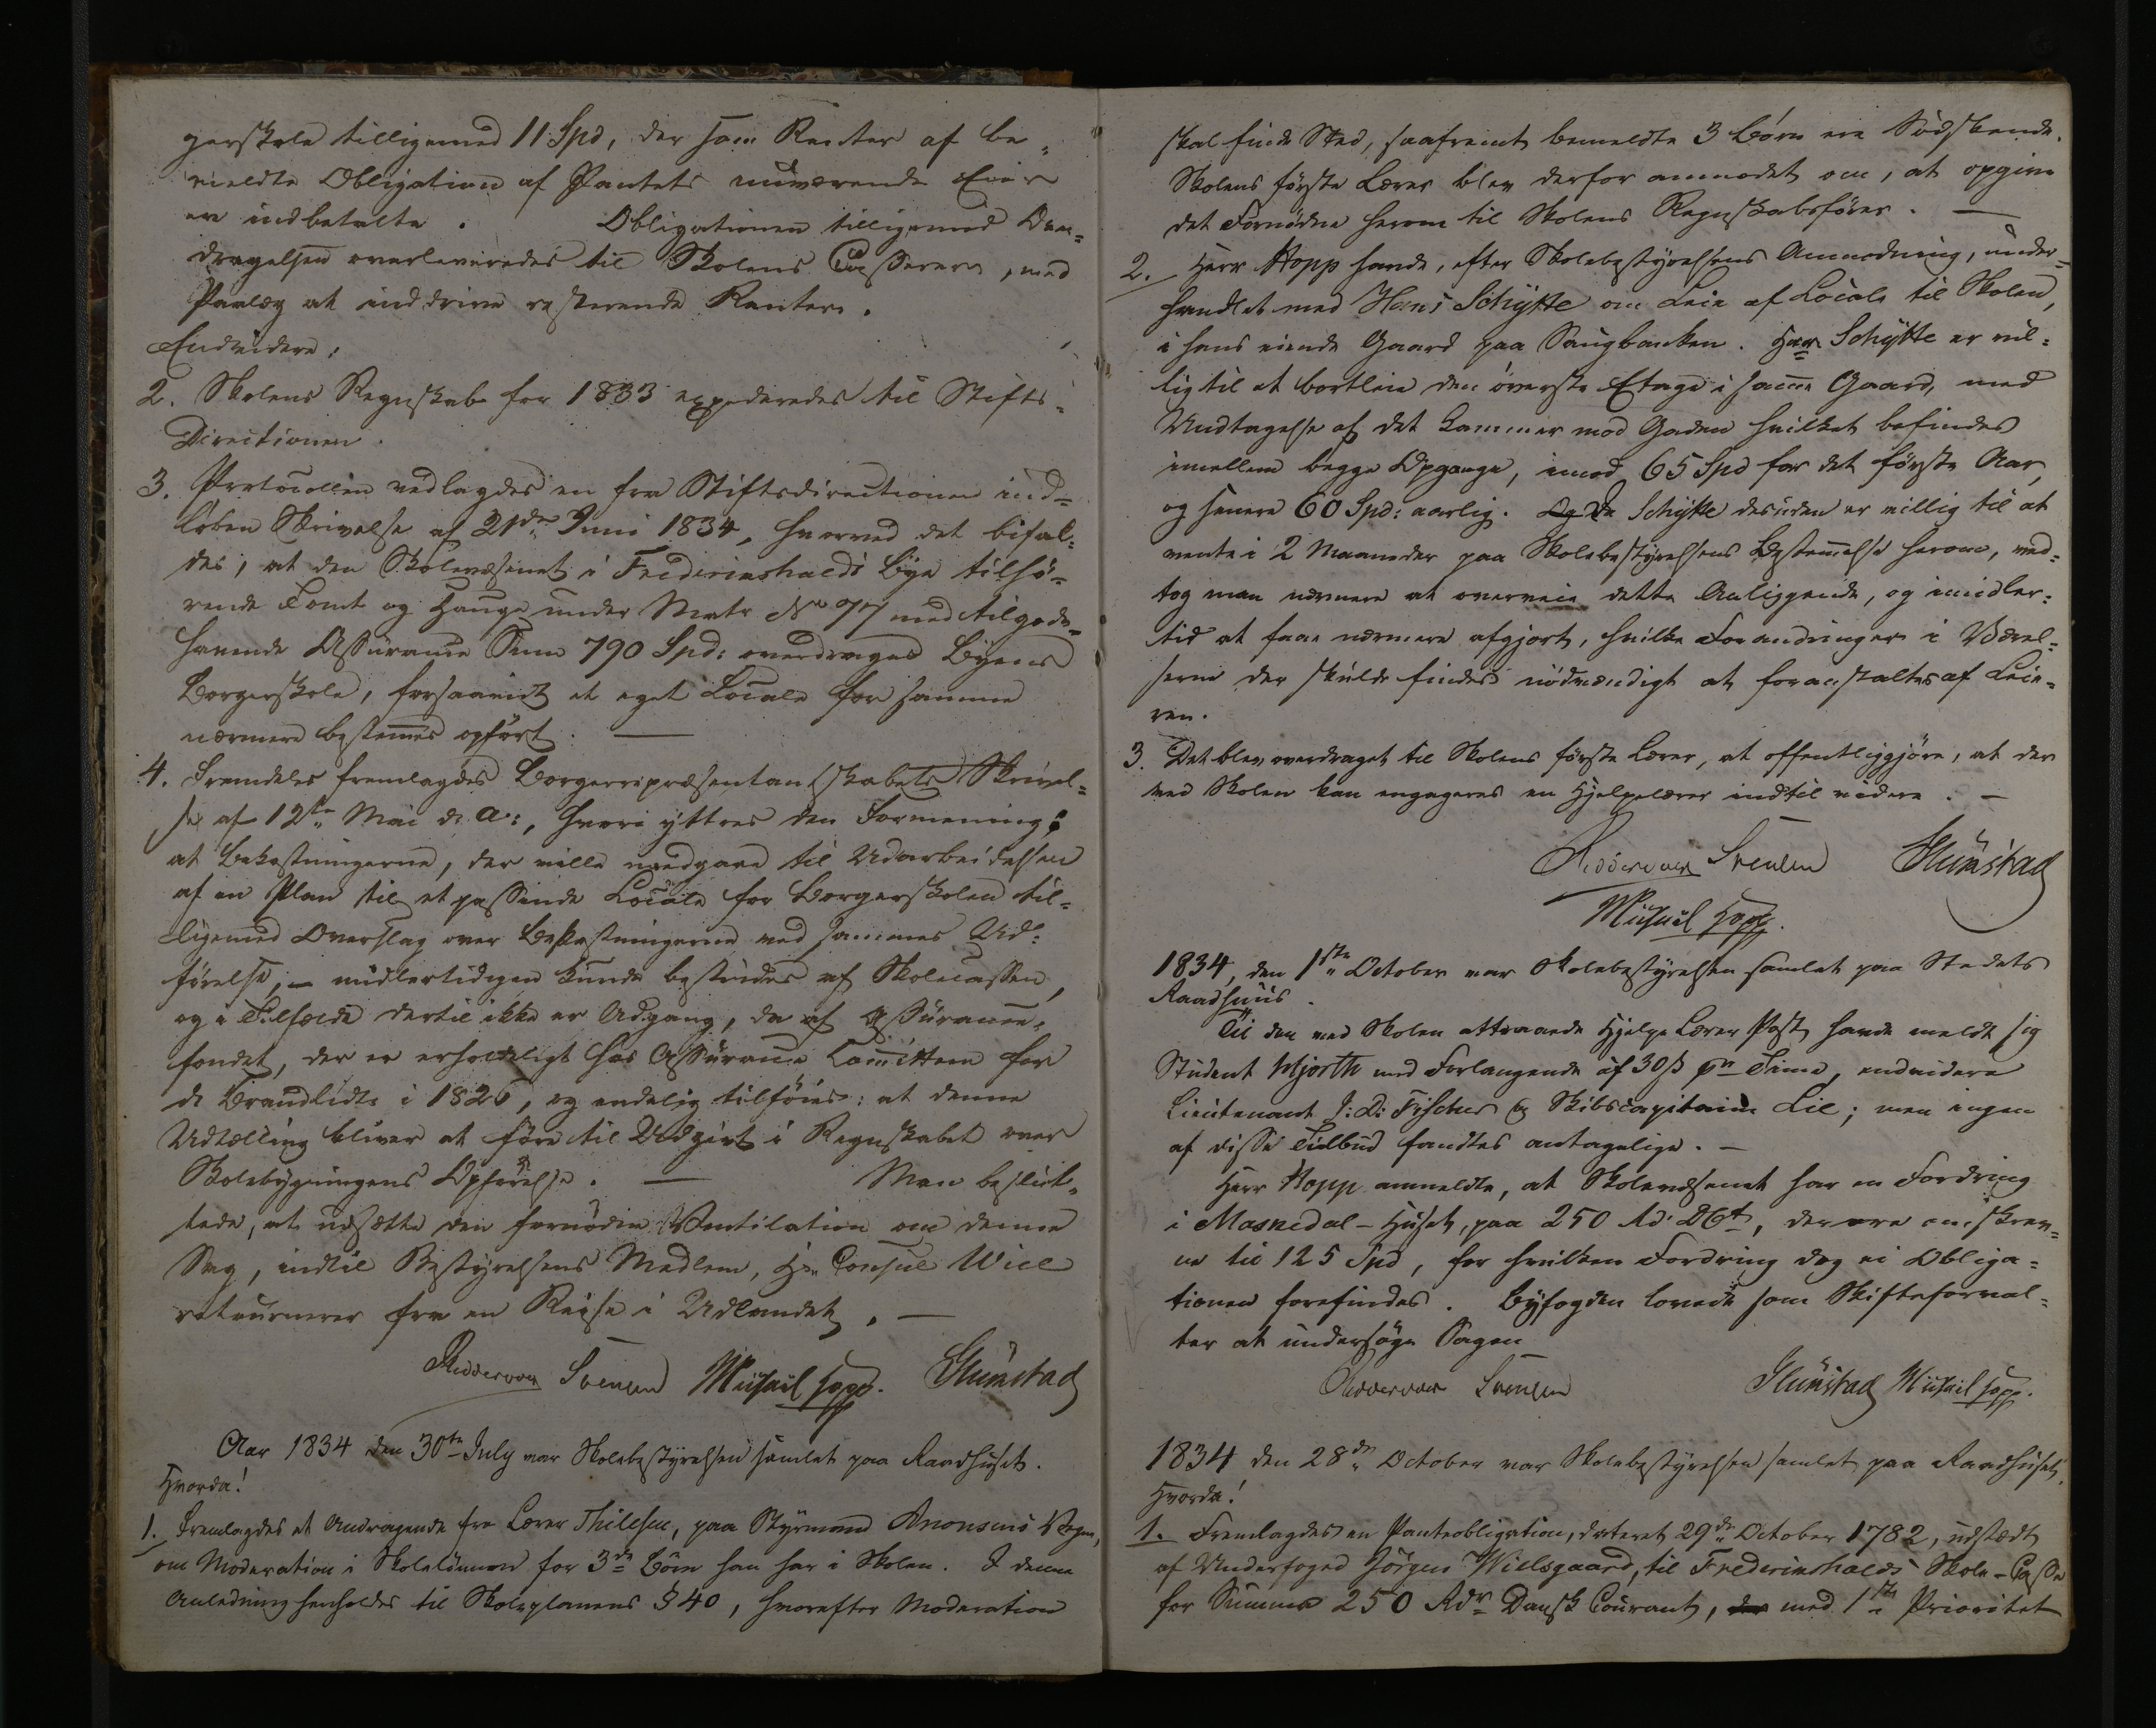 gerskole tilligemed 11 Spd, der som Renter af be-
meldte Obligation af Pantets nuværende Eier
er indbetalte. Obligationen tilligemed Over-
dragelsen overleveredes til Skolens Casserer, med
Paalæg at inddrive resterende Renter.
Endvidere:
2. Skolens Regnskab for 1833 expederedes til Stifts-
Directionen.
3. Protocollen vedlagdes en fra Stiftsdirectionen ind-
löben Skrivelse af 21de Juni 1834, hvorved det bifal-
des, at den Skolevæsenet i Fredrikshalds Bye tilhö-
rende Tomt og Hauge under Matr No 77 med tilgode-
havende Assurance Sum 790 Spd: overdrages Byens
Borgerskole, forsaavidt et eget Locale for samme
nærmere bestemmes opfört. —
4. Fremdeles fremlagdes Borgerrepræsentantskabets Skrivel-
se af 12te Mai d. A:, hvori yttres den Formening:
at Bekostningerne, der ville medgaae til Udarbeidelsen
af en Plan til et passende Locale for Borgerskolen til-
ligemed Overslag over Bekostningerne ved sammes Ud-
förelse, — midlertidigen kunde bestrides af Skolecassen,
og i Tilfælde dertil ikke er Adgang, da af Assurance-
fondet, der er erholdeligt hos Assurance Committeen for
de Brandlidte i 1826, og endelig tilföies: at denne
Udtælling bliver at före til Udgivt i Regnskabet over
Skolebygningens Opförelse. — Man beslut-
tede, at udsætte den fornödne Ventilation om denne
Sag, indtil Bestyrelsens Medlem, Hr. Consul Wiel
retournerer fra en Reise i Udlandet. —
Riddervold Svensen Michael Hopp. Stumstad
Aar 1834 den 30te July var Skolebestyrelsen samlet paa Raadhuset.
Hvorda!
1. Fremlagdes et Andragende fra Lærer Thilesen, paa Styrmand Aronsens Vegne,
om Moderation i Skolelönnen for 3de Börn han har i Skolen. I denne
Anledning henholdes til Skoleplanens § 40, hvorefter Moderation
skal finde Sted, saafremt bemeldte 3 Börn ere Södskende.
Skolens förste Lærer blev derfor anmodet om, at opgive
det Fornödne herom til Skolens Regnskabsförer. —
2. Herr Hopp havde, efter Skolebestyrelsens Anmodning, under-
handlet med Hans Schytte om Leie af Locale til Skolen,
i hans eiende Gaard paa Saugbanken. Herr Schytte er vil-
lig til at bortleie den överste Etage i samme Gaard, med
Undtagelse af det Kammer mod Gaden hvilket befindes
imellem begge Opgange, imod 65 Spd for det förste Aar,
og senere 60 Spd: aarlig. Og Da Schytte desuden er villig til at
vente i 2 Maaneder paa Skolebestyrelsens Bestemmelse herom, ved-
tog man nærmere at overveie dette Anliggende, og imidler-
tid at faae nærmere afgjort, hvilke Forandringer i Værel-
serne der skulde findes nödvendigt at foranstaltes af Leie-
ren.
3. Det blev overdraget til Skolens förste Lærer, at offentliggjöre, at der
ved Skolen kan engageres en Hjelpelærer indtil videre. —
Riddervold Svensen Stumstad
Michael Hopp.
1834, den 1ste October var Skolebestyrelsen samlet paa Stedets
Raadhuus.
Til den ved Skolen attraaede Hjelpe Lærer Post havde meldt sig
Student Hjorth med Forlangende af 30 ß pr Time, endvidere
Lieutenant J: D: Fischer og Skibscapitain Lie; men ingen
af disse Tilbud fandtes antagelige. —
Herr Hopp anmeldte, at Skolevæsenet har en Fordring
i Masnedal-Huset, paa 250 Rd: D Ct, der ere omskrev-
ne til 125 Spd, for hvilken Fordring dog ei Obliga-
tionen forefindes. Byfogden lovede som Skifteforval-
ter at undersöge Sagen
Riddervold Svensen Stumstad Michael Hopp.
1834 den 28de October var Skolebestyrelsen samlet paa Raadhuset,
Hvorda!
1. Fremlagdes en Panteobligation, dateret 29de October 1782, udstædt
af Underfoged Jörgen Wielsgaard, til Frederikshalds Skole-Casse
for Summa 250 Rdr Dansk Courant, der med 1ste Prioritet